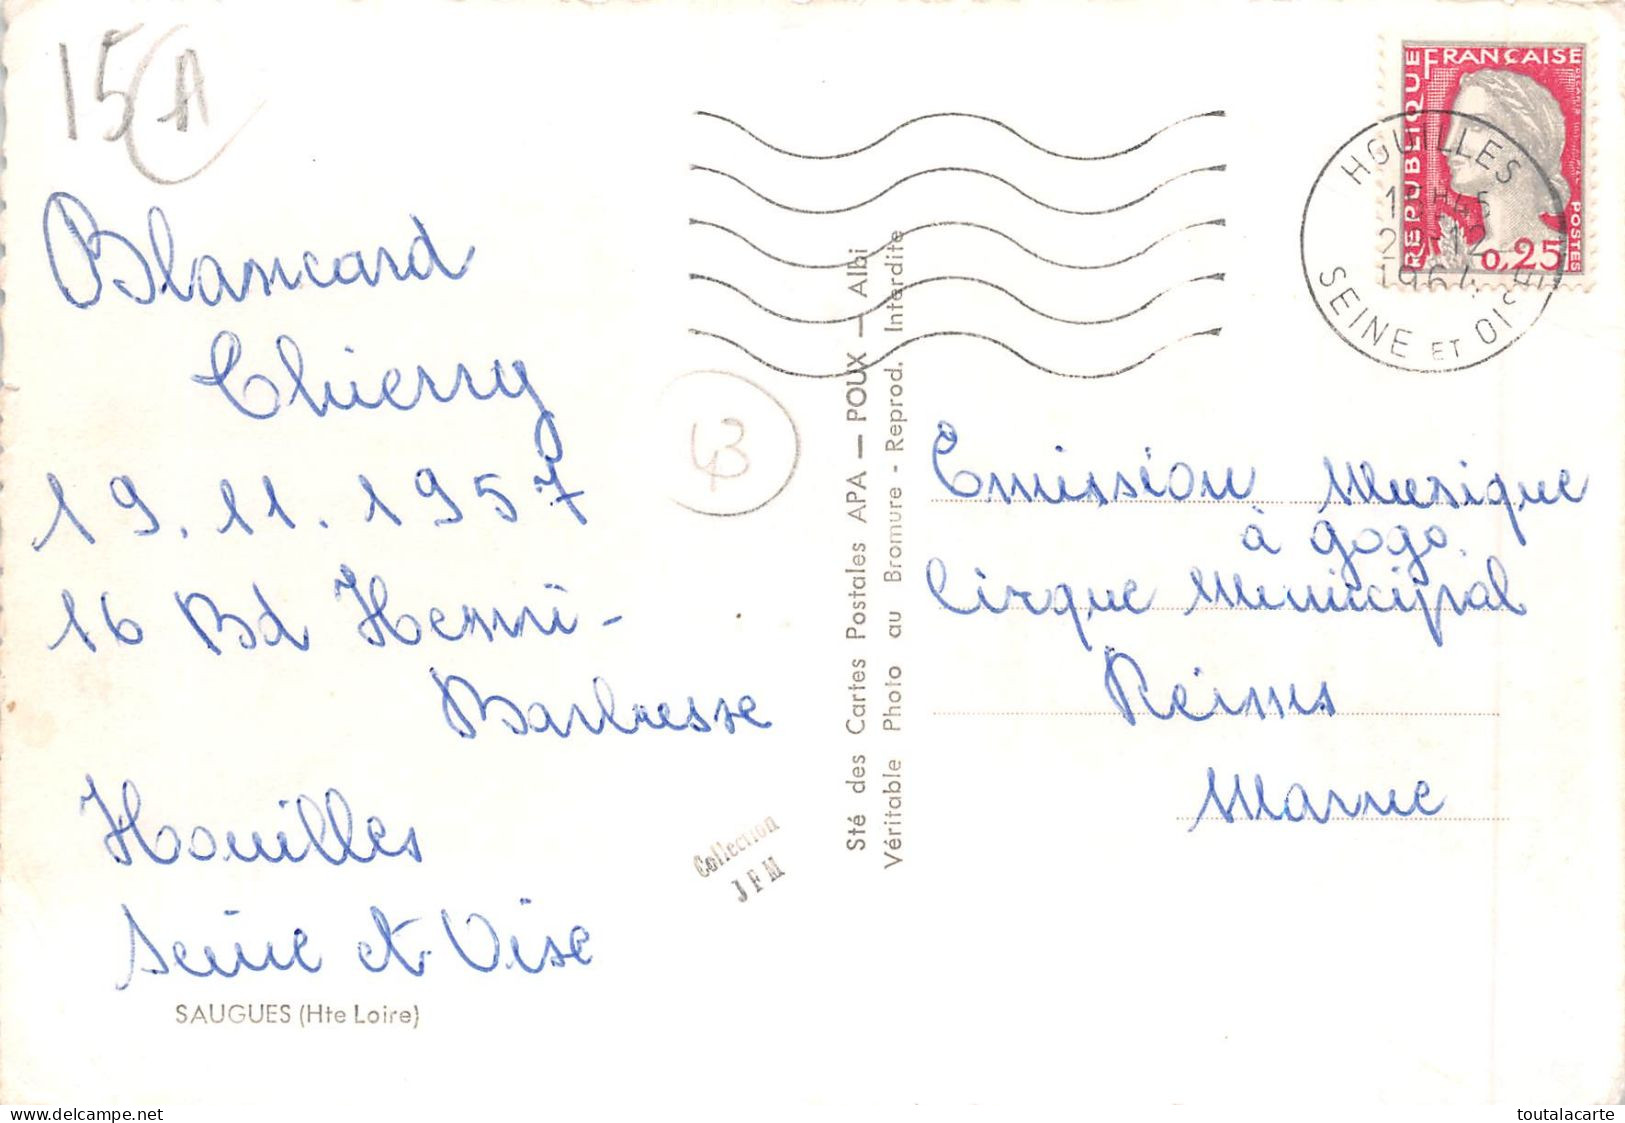 15 A
Blancard
Thierry
19.11.1957
16 Bd Henri-
Barbusse
Houilles
Seine et Oise
SAUGUES (Hte Loire)
43
Collection
JFM
Sté des Cartes Postales APA — POUX — Albi
Véritable Photo au Bromure - Reprod. Interdite
RÉPUBLIQUE FRANÇAISE
POSTES
0,25
HOUILLES
15H45
1964
SEINE ET OISE
Emission Musique
à gogo.
Cirque Municipal
Reims
Marne
www.delcampe.net
toutalacarte